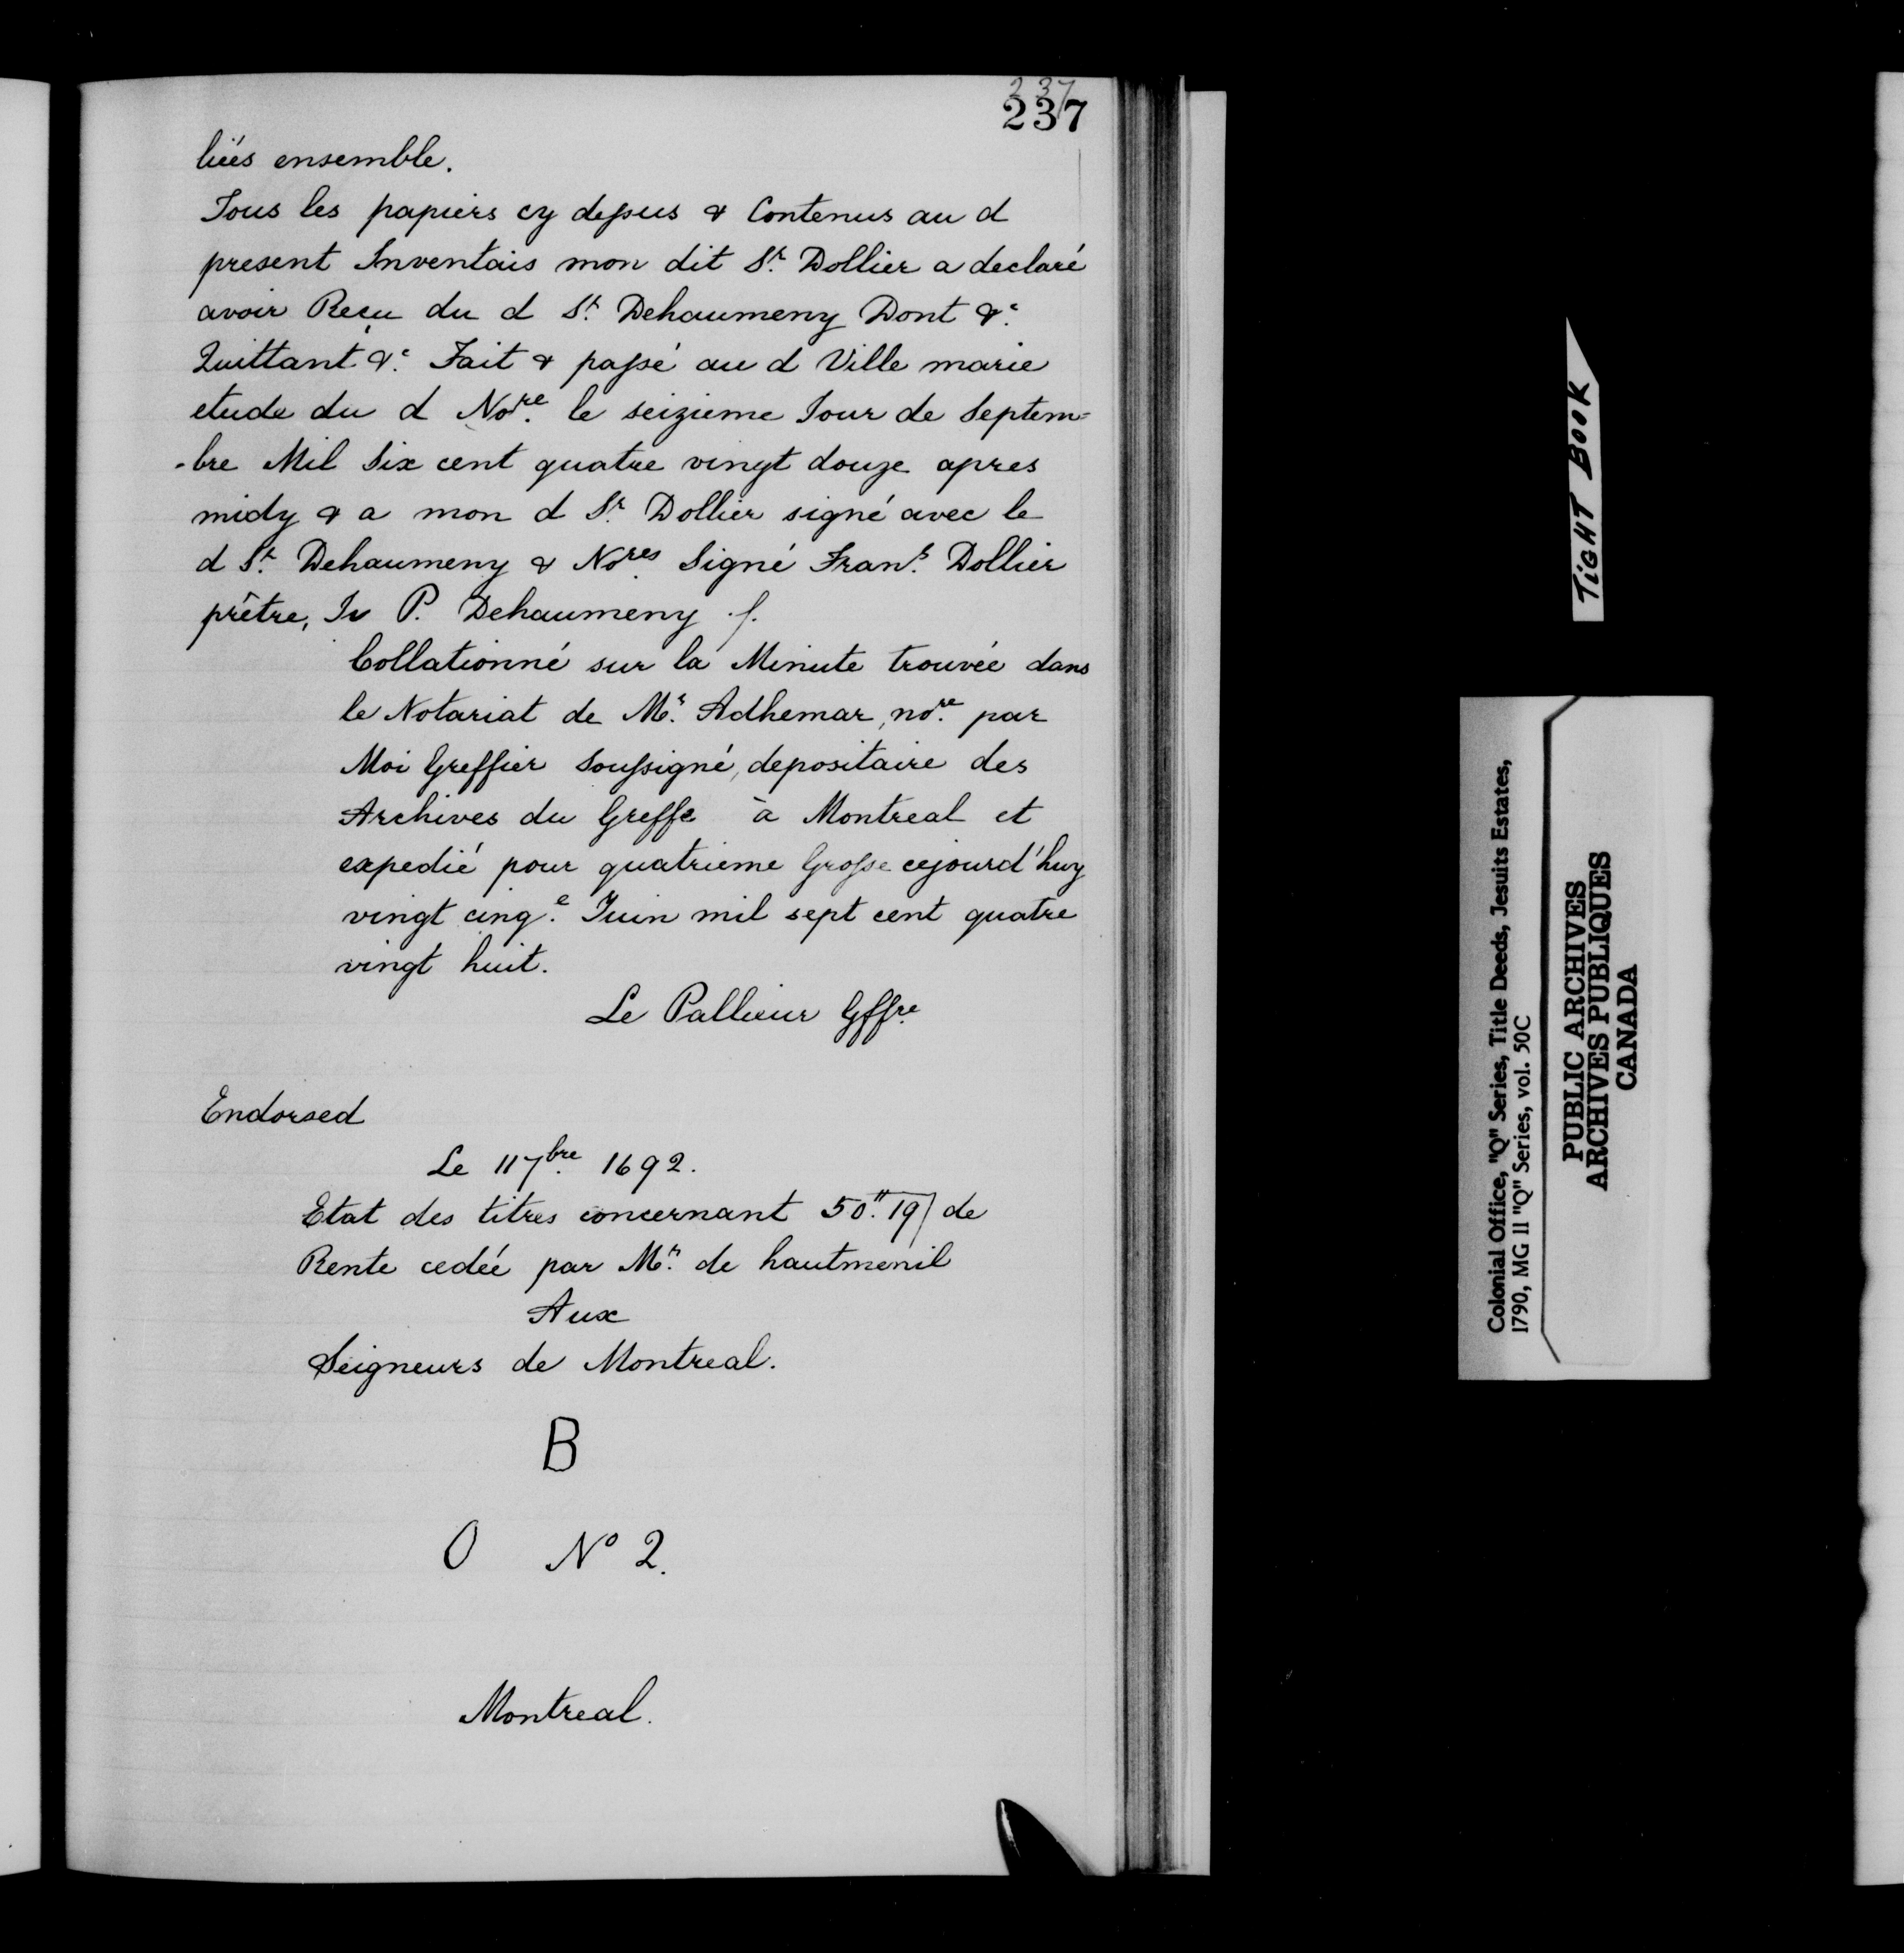 237
237
liées ensemble.
Tous les papiers cy dessus & Contenus au d
present Inventais mon dit Sr. Dollier a declaré
avoir Reçu du d Sr. Dehaumeny Dont &c.
Quittant &c. Fait & passé au d Ville marie
etude du d Nore. le seizieme Jour de Septem=
-bre Mil Six cent quatre vingt douze apres
midy & a mon d Sr. Dollier signé avec le
d Sr. Dehaumeny & Nores. Signé Frans. Dollier
prêtre, P. Dehaumeny
Collationné sur la Minute trouvée dans
le Notariat de Mr. Adhemar, nore. par
Moi Greffier Soussigné, depositaire des
Archives du Greffe à Montreal et
expedié pour quatrieme Grosse cejourd'huy
vingt cinq.e Juin mil sept cent quatre
vingt huit.
Le Pallieur Gffre.
Endorsed
Le 11 7bre. 1692.
Etat des titres concernant 50." 19/ de
Rente cedée par Mr. de hautmenil
Aux
Seigneurs de Montreal.
B
O No 2.
Montreal.
TIGHT BOOK
Colonial Office, "Q" Series, Title Deeds, Jesuits Estates,
1790, MG 11 "Q" Series, vol. 50C
PUBLIC ARCHIVES
ARCHIVES PUBLIQUES
CANADA